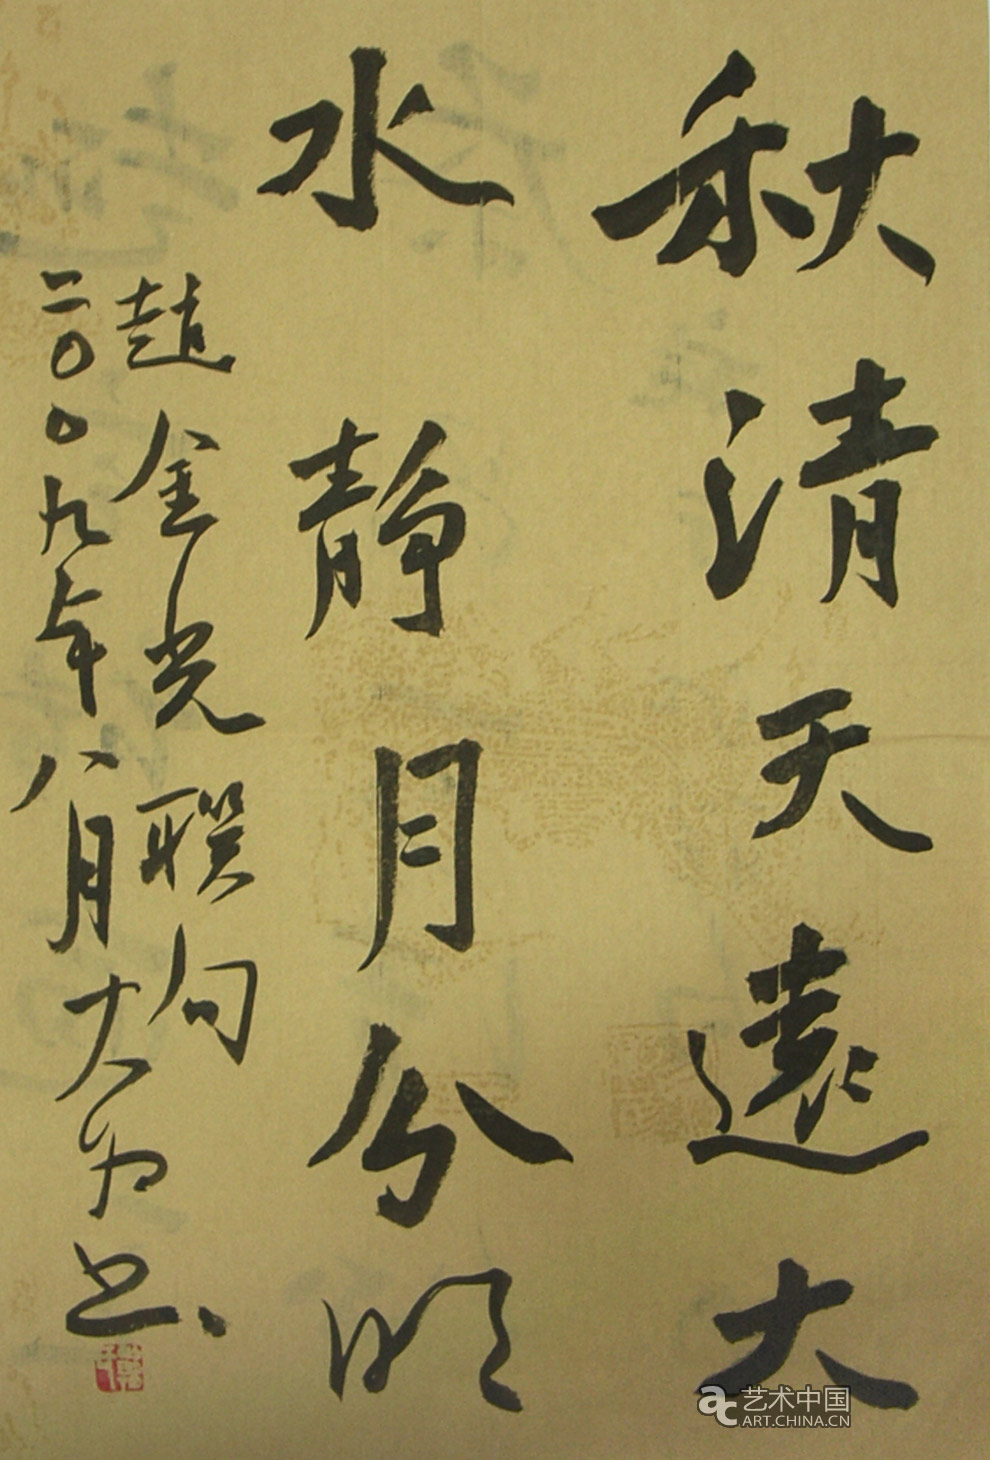 秋清天遠大
水静月分明
趙金光联句
二〇〇九年八月大为书
艺术中国
ART.CHINA.CN